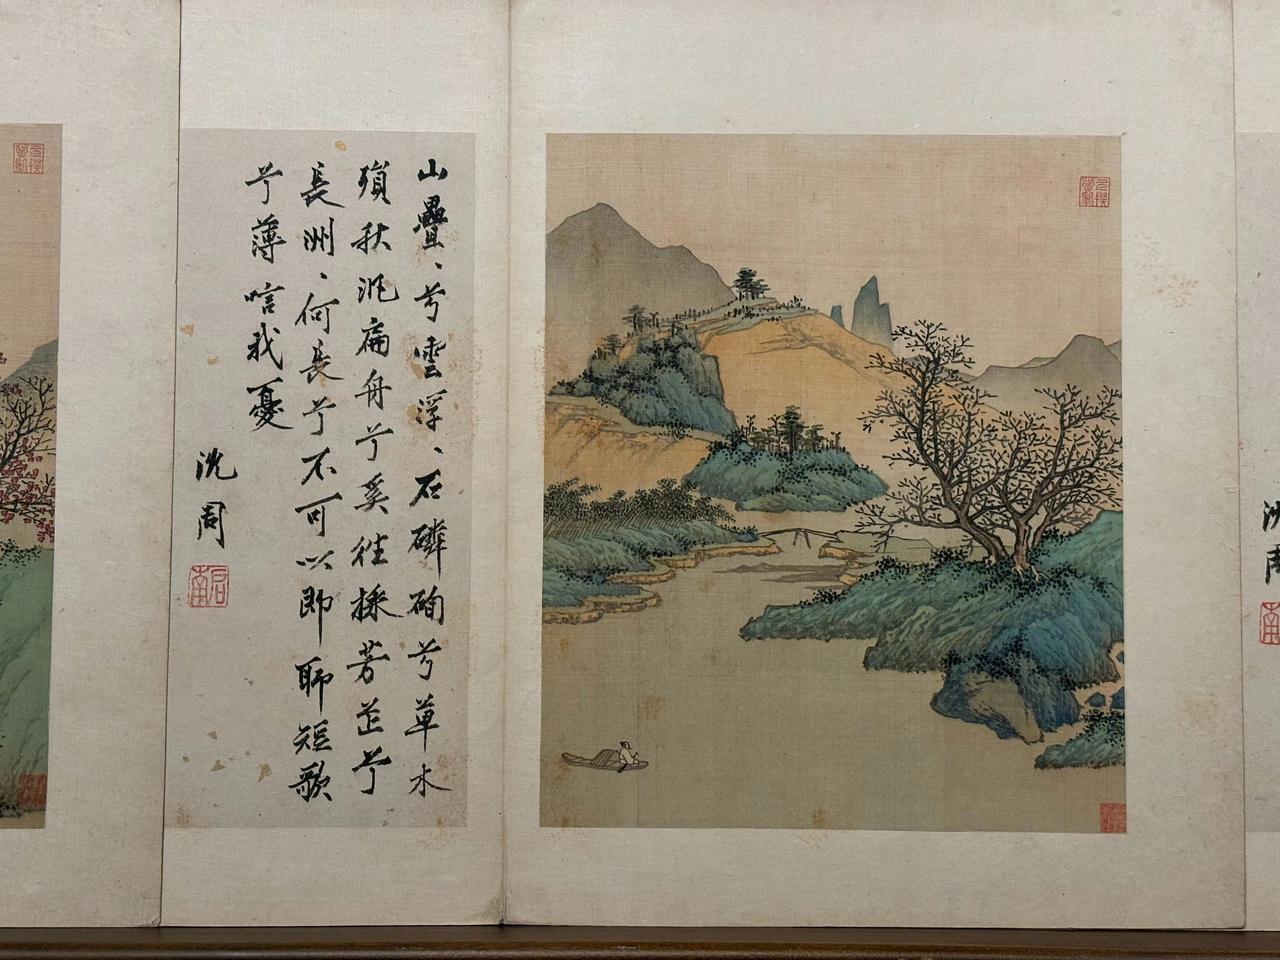 山疊、兮雲浮、石磷兮草木
殞秋汎扁舟兮奚往採芳芷兮
長洲、何長兮不可以即聊短歌
兮薄唁我憂
沈周
启南